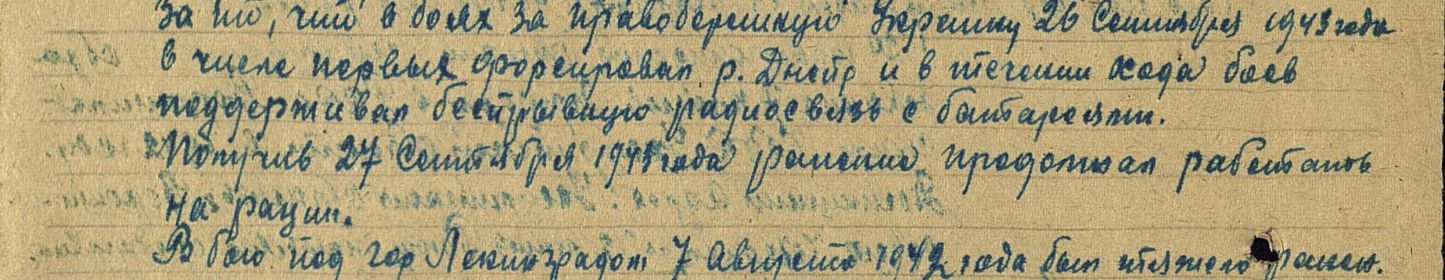 За то, что в боях за правобережную Украину 26 Сентября 1943 года
в числе первых форсировал р. Днепр и в течении хода боев
поддерживал бесприрывную радиосвязь с батареями.
Получив 27 Сентября 1943 года ранение продолжал работать
на рации.
В бою под гор Ленинградом 7 Августа 1942 года был тяжело ранен